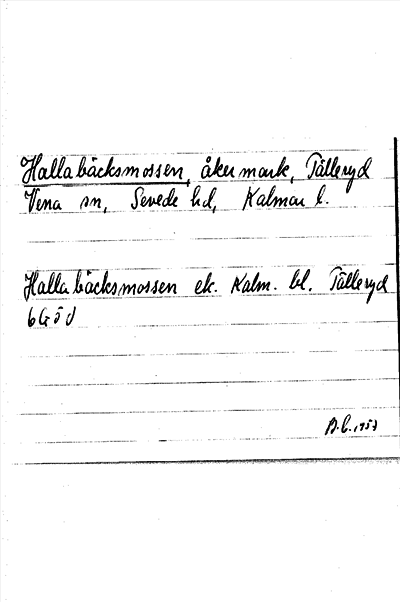 Hallabäcksmossen, åkermark, Tälleryd
Vena sn, Sevede hd, Kalmar l.
Hallabäcksmossen ek. Kalm. bl. Tälleryd
6Göd
1953